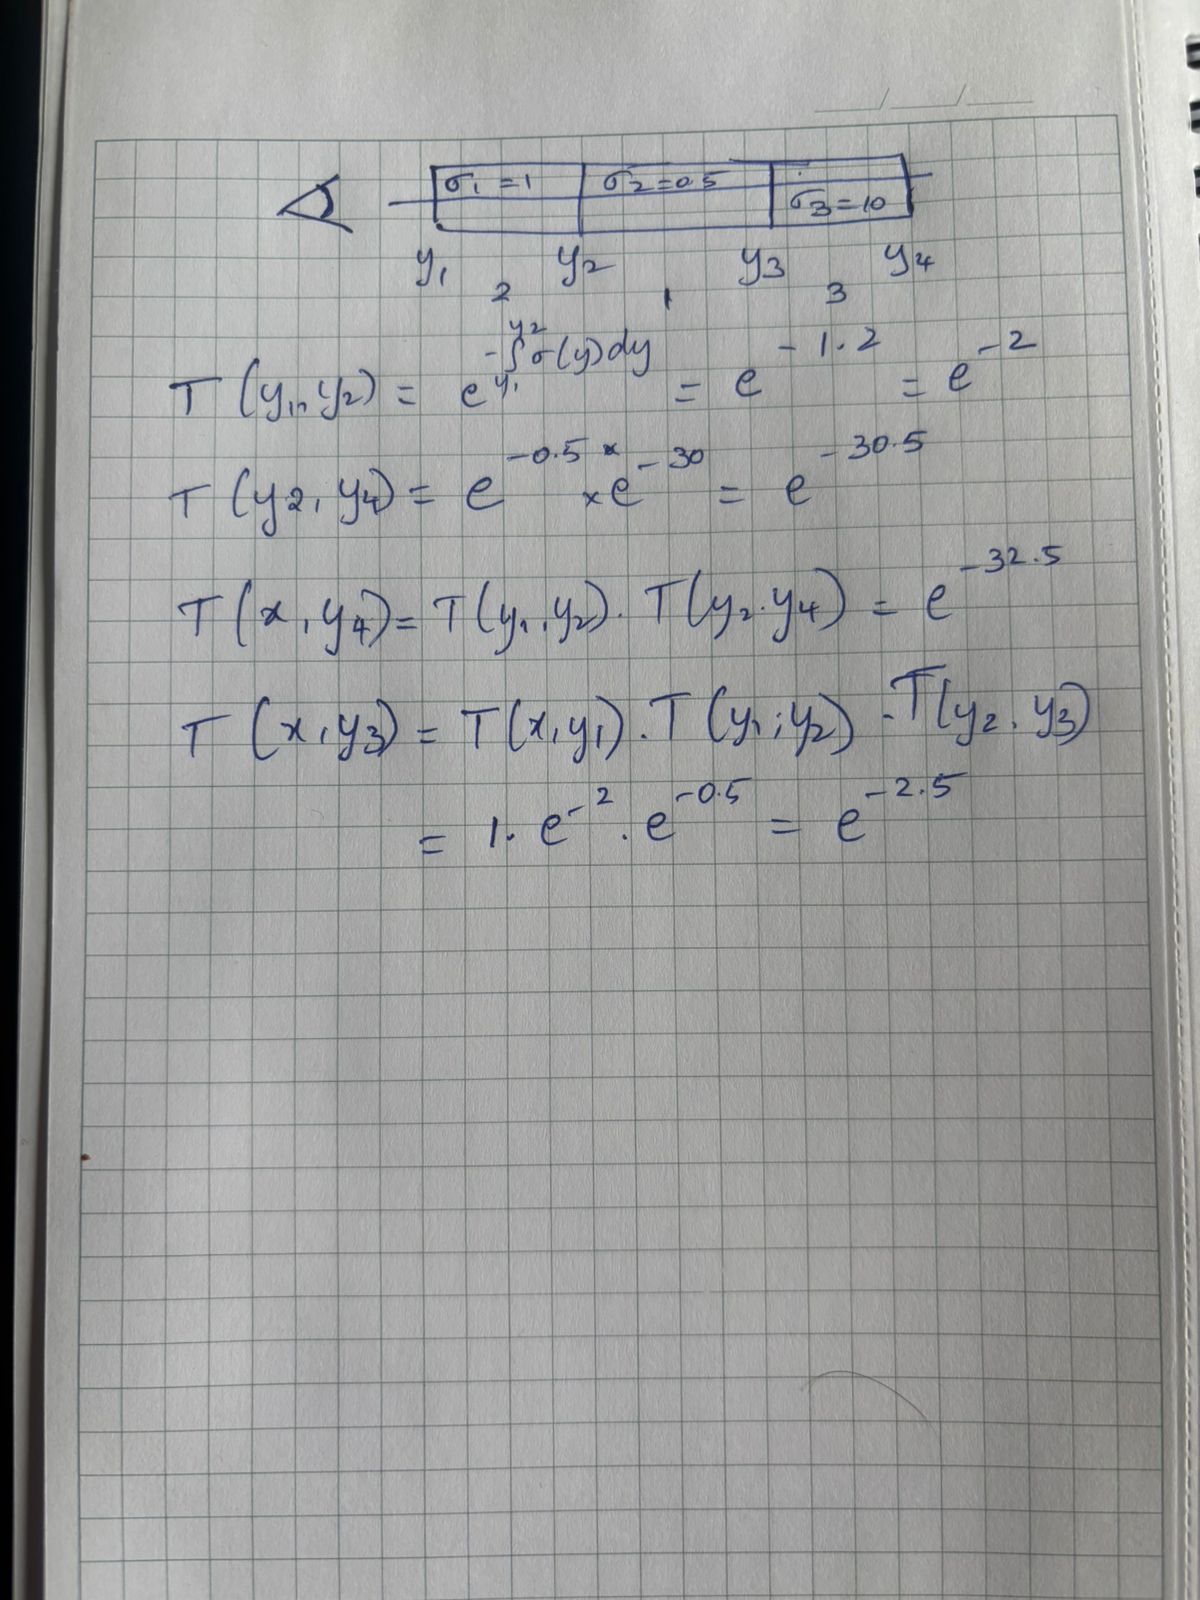 σ1 = 1 σ2 = 0.5 σ3 = 10
y1 y2 y3 y4
2 1 3
T (y1, y2) = e^{-∫_{y1}^{y2} σ(y)dy} = e^{-1.2} = e^{-2}
T (y2, y4) = e^{-0.5} × e^{-30} = e^{-30.5}
T (x, y4) = T(y1, y2) . T(y2 . y4) = e^{-32.5}
T (x, y3) = T(x, y1) . T(y1, y2) . T(y2, y3)
= 1. e^{-2} . e^{-0.5} = e^{-2.5}